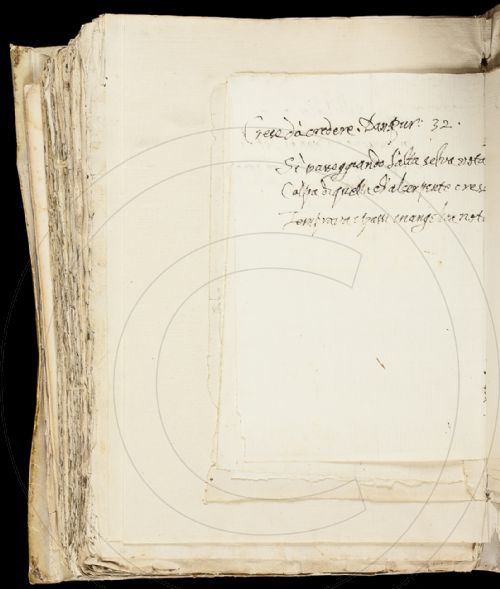 Crese da credere. Dan. pur: 32.
Sì passeggiando l'alta selva vota
Colpa di quella ch'al serpente crese
Temprava i passi un angelica nota